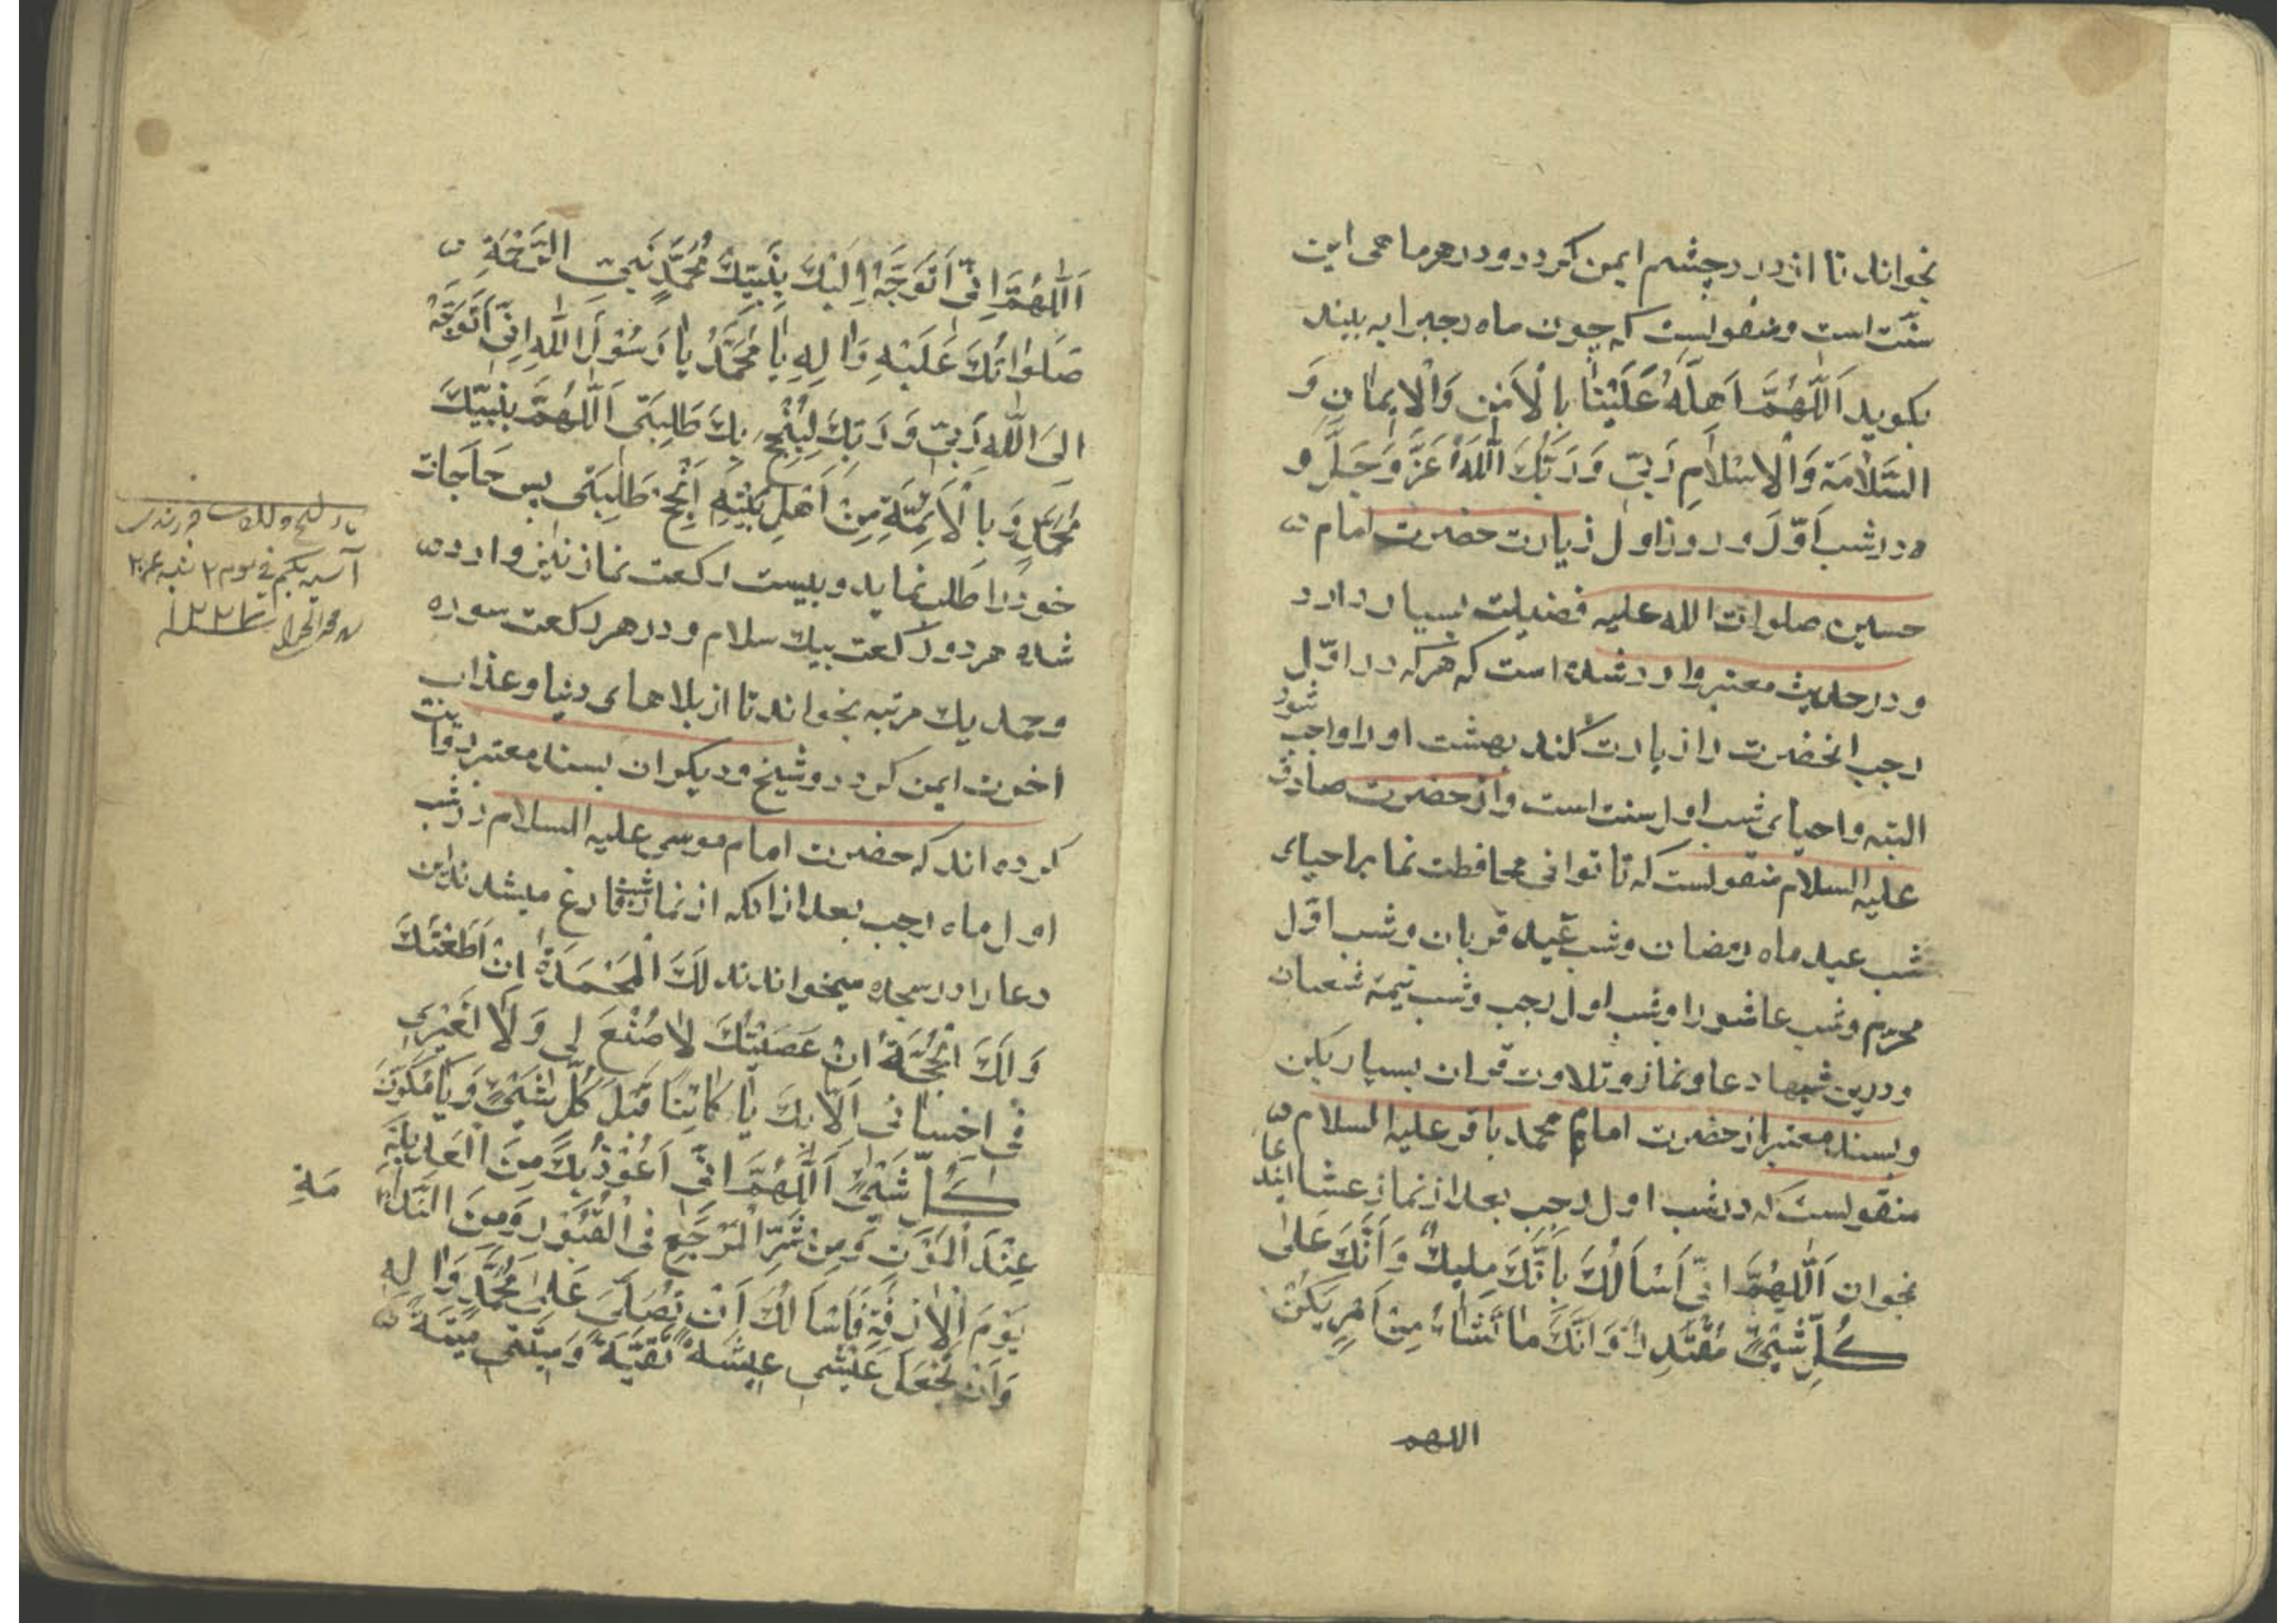 بخواند تا از درد چشم ایمن کردد و در هر ماهی این
سنّت است و منقولست که چون ماه رجب را به بیند
بکوید اَللّٰهُمَّ اَهِلَّهُ عَلَيْنٰا بِالْاَمْنِ وَالْايمٰانِ وَ
السَّلٰامَةِ وَالْاِسْلٰامِ رَبّى وَرَبُّكَ اللّٰهُ عَزَّ وَجَلَّ و
و در شب اوّل و روز اول زیارت حضرت امام
حسین صلوات الله علیه فضیلت بسیار دارد
و در حدیث معتبر وارد شده است که هر که در اوّل
رجب انحضرت را زیارت کند بهشت او را واجب شود
البته و احیای شب اول سنت است و از حضرت صادق
علیه السلام منقولست که تا توانی محافظت نما بر احیای
شب عید ماه رمضان و شب عید قربان و شب اوّل
محرّم و شب عاشورا و شب اول رجب و شب نیمۀ شعبان
و درین شبها دعا و نماز و تلاوت قران بسیار بکن
و بسند معتبر از حضرت امام محمد باقر علیه السلام
منقولست که در شب اول رجب بعد از نماز عشا ایندعا
بخوان اَللّٰهُمَّ اِنّى اَسْاَلُكَ بِاَنَّكَ مَليكٌ وَاَنَّكَ عَلىٰ
كُلِّ شَىْءٍ مُقْتَدِرٌ وَاَنَّكَ مٰا تَشٰاءُ مِنْ اَمْرٍ يَكُنْ
اللهم
اَللّٰهُمَّ اِنّى اَتَوَجَّهُ اِلَيْكَ بِنَبِيِّكَ مُحَمَّدٍ نَبِىِّ الرَّحْمَةِ
صَلَوٰاتُكَ عَلَيْهِ وَاٰلِهِ يٰا مُحَمَّدُ يٰا رَسُوْلَ اللّٰهِ اِنّى اَتَوَجَّهُ
اِلَى اللّٰهِ رَبّى وَرَبِّكَ لِيُنْجِحَ بِكَ طَلِبَتى اَللّٰهُمَّ بِنَبِيِّكَ
مُحَمَّدٍ وَبِالْاَئِمَّةِ مِنْ اَهْلِ بَيْتِهِ اَنْجِحْ طَلِبَتى پس حاجات
خود را طلب نماید و بیست رکعت نماز نیز وارد
شده هر دو رکعت بیک سلام و در هر رکعت سوره
و حمد یک مرتبه بخواند تا از بلاهای دنیا و عذاب
اخرت ایمن کردد و شیخ و دیکران بسند معتبر روایت
کرده اند که حضرت امام موسی علیه السلام در شب
اول ماه رجب بعد از انکه از نماز شب فارغ میشدند این
دعا را در سجده میخواندند لَكَ الْمَحْمَدَةُ اِنْ اَطَعْتُكَ
وَلَكَ الْحُجَّةُ اِنْ عَصَيْتُكَ لٰا صُنْعَ لى وَلٰا لِغَيْرى
فى اِحْسٰانٍ اِلّٰا بِكَ يٰا كٰائِنًا قَبْلَ كُلِّ شَىْءٍ وَيٰا مُكَوِّنَ
كُلِّ شَىْءٍ اَللّٰهُمَّ اِنّى اَعُوْذُ بِكَ مِنَ الْعَدِيلَةِ
عِنْدَ الْمَوْتِ وَمِنْ شَرِّ الْمَرْجَعِ فِى الْقُبُوْرِ وَمِنَ النَّدٰا مَةِ
يَوْمَ الْاٰزِفَةِ فَاَسْاَلُكَ اَنْ تُصَلِّىَ عَلىٰ مُحَمَّدٍ وَاٰلِهِ
وَاَنْ تَجْعَلَ عَيْشى عِيشَةً نَقِيَّةً وَميتَتى ميتَةً
آسیه بیکم فی یوم